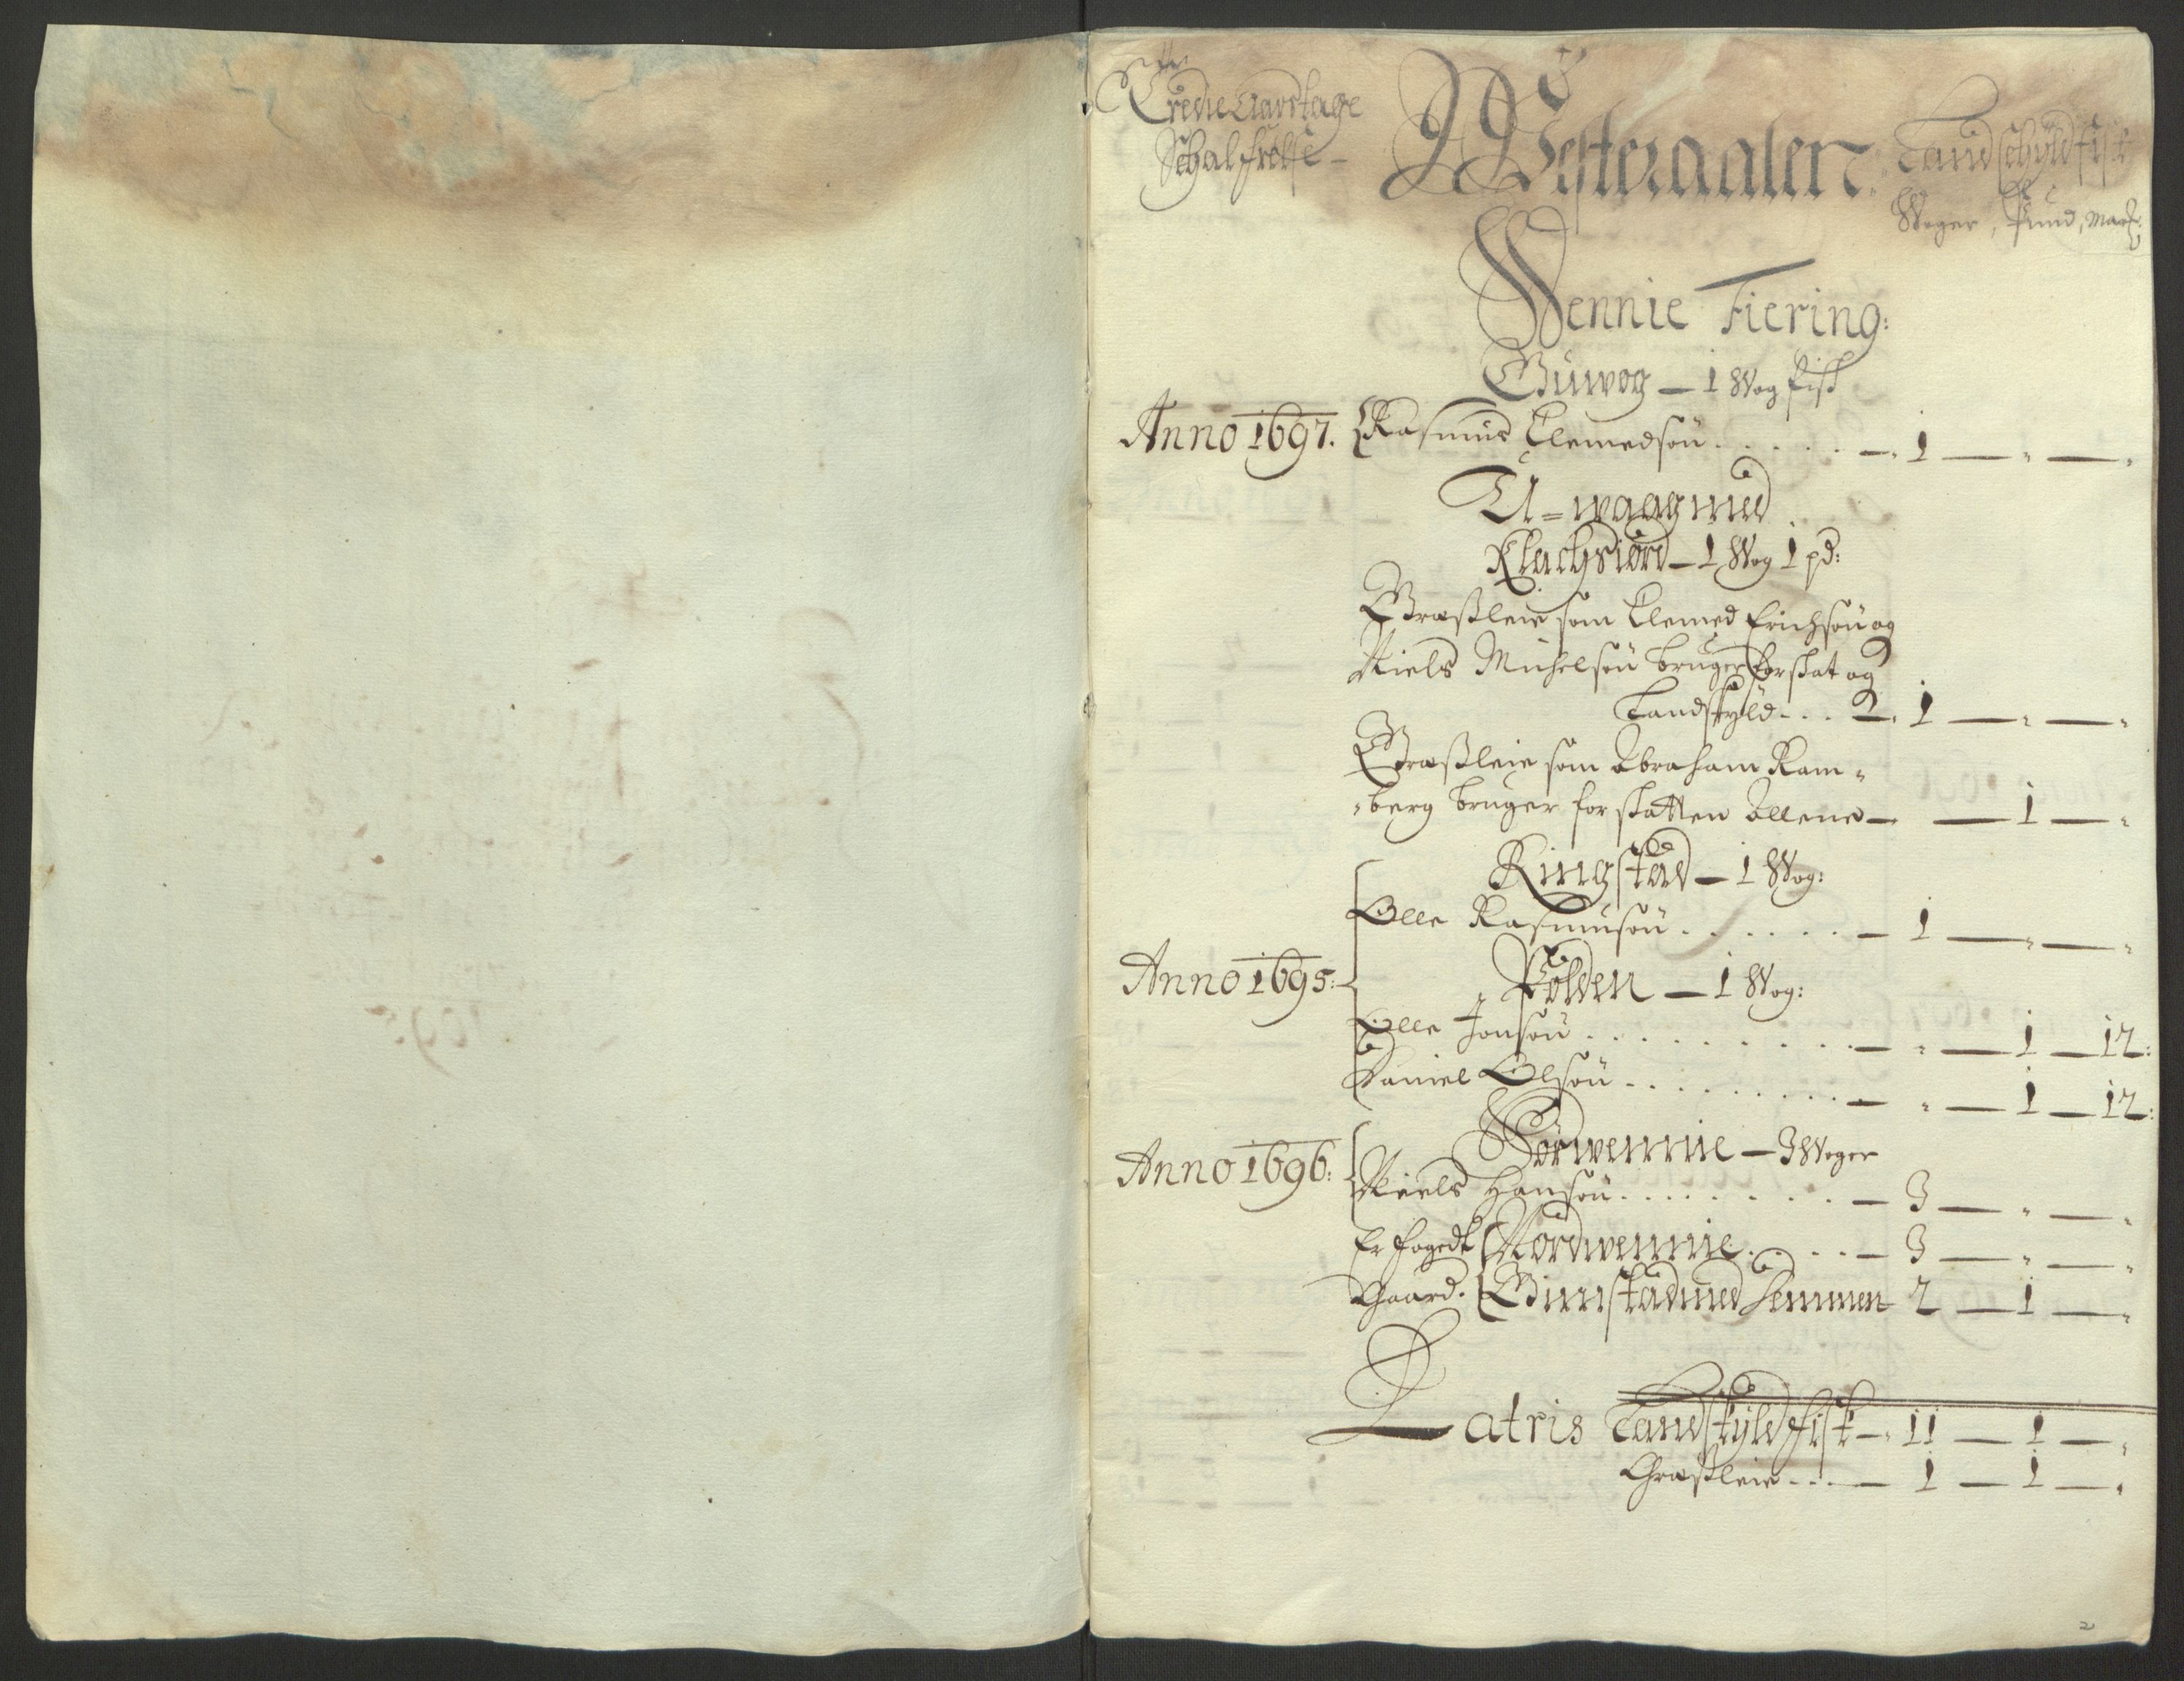 Tredie Aarstage
Schal frelse -
Westeraalen
Landschyld fisk
Woger, Pund, Mark:
Wennie Fiering:
Guwog - 1 Wog fisk
Anno 1697. Rasmus Clemedsøn . . . . . - 1 - " - "
A-waag med
Klachsiord - 1 Wog 1 pd:
Græsleie som Clemed Erichsøn og
Niels Michelsøn bruger for skat og
Landskyld - . . - 1 - " - "
Græsleie som Abraham Ram-
-berg bruger for skatten Allene - - 1 - "
Ringstad - 1 Wog:
Olle Rasmusøn . . . . . . - 1 - " - "
Anno 1695:
Polden - 1 Wog:
Olle Jonsøn . . . . . . . . . - " - 1 - 12:
Daniel Olsøn - . . . . . . . . - " - 1 - 12:
Sørwennie - 3 Woger
Anno 1696: Niels Hansøn . . . . . . . . - 3 - " - "
Er fogedt Nordwennie . . . . - 3 - " - "
Gaard. Gimstad med Lemmen 2 - 1 - "
Latris Landskyld fisk - 11 - 1 - "
Græsleie - . . - 1 - 1 - "
2